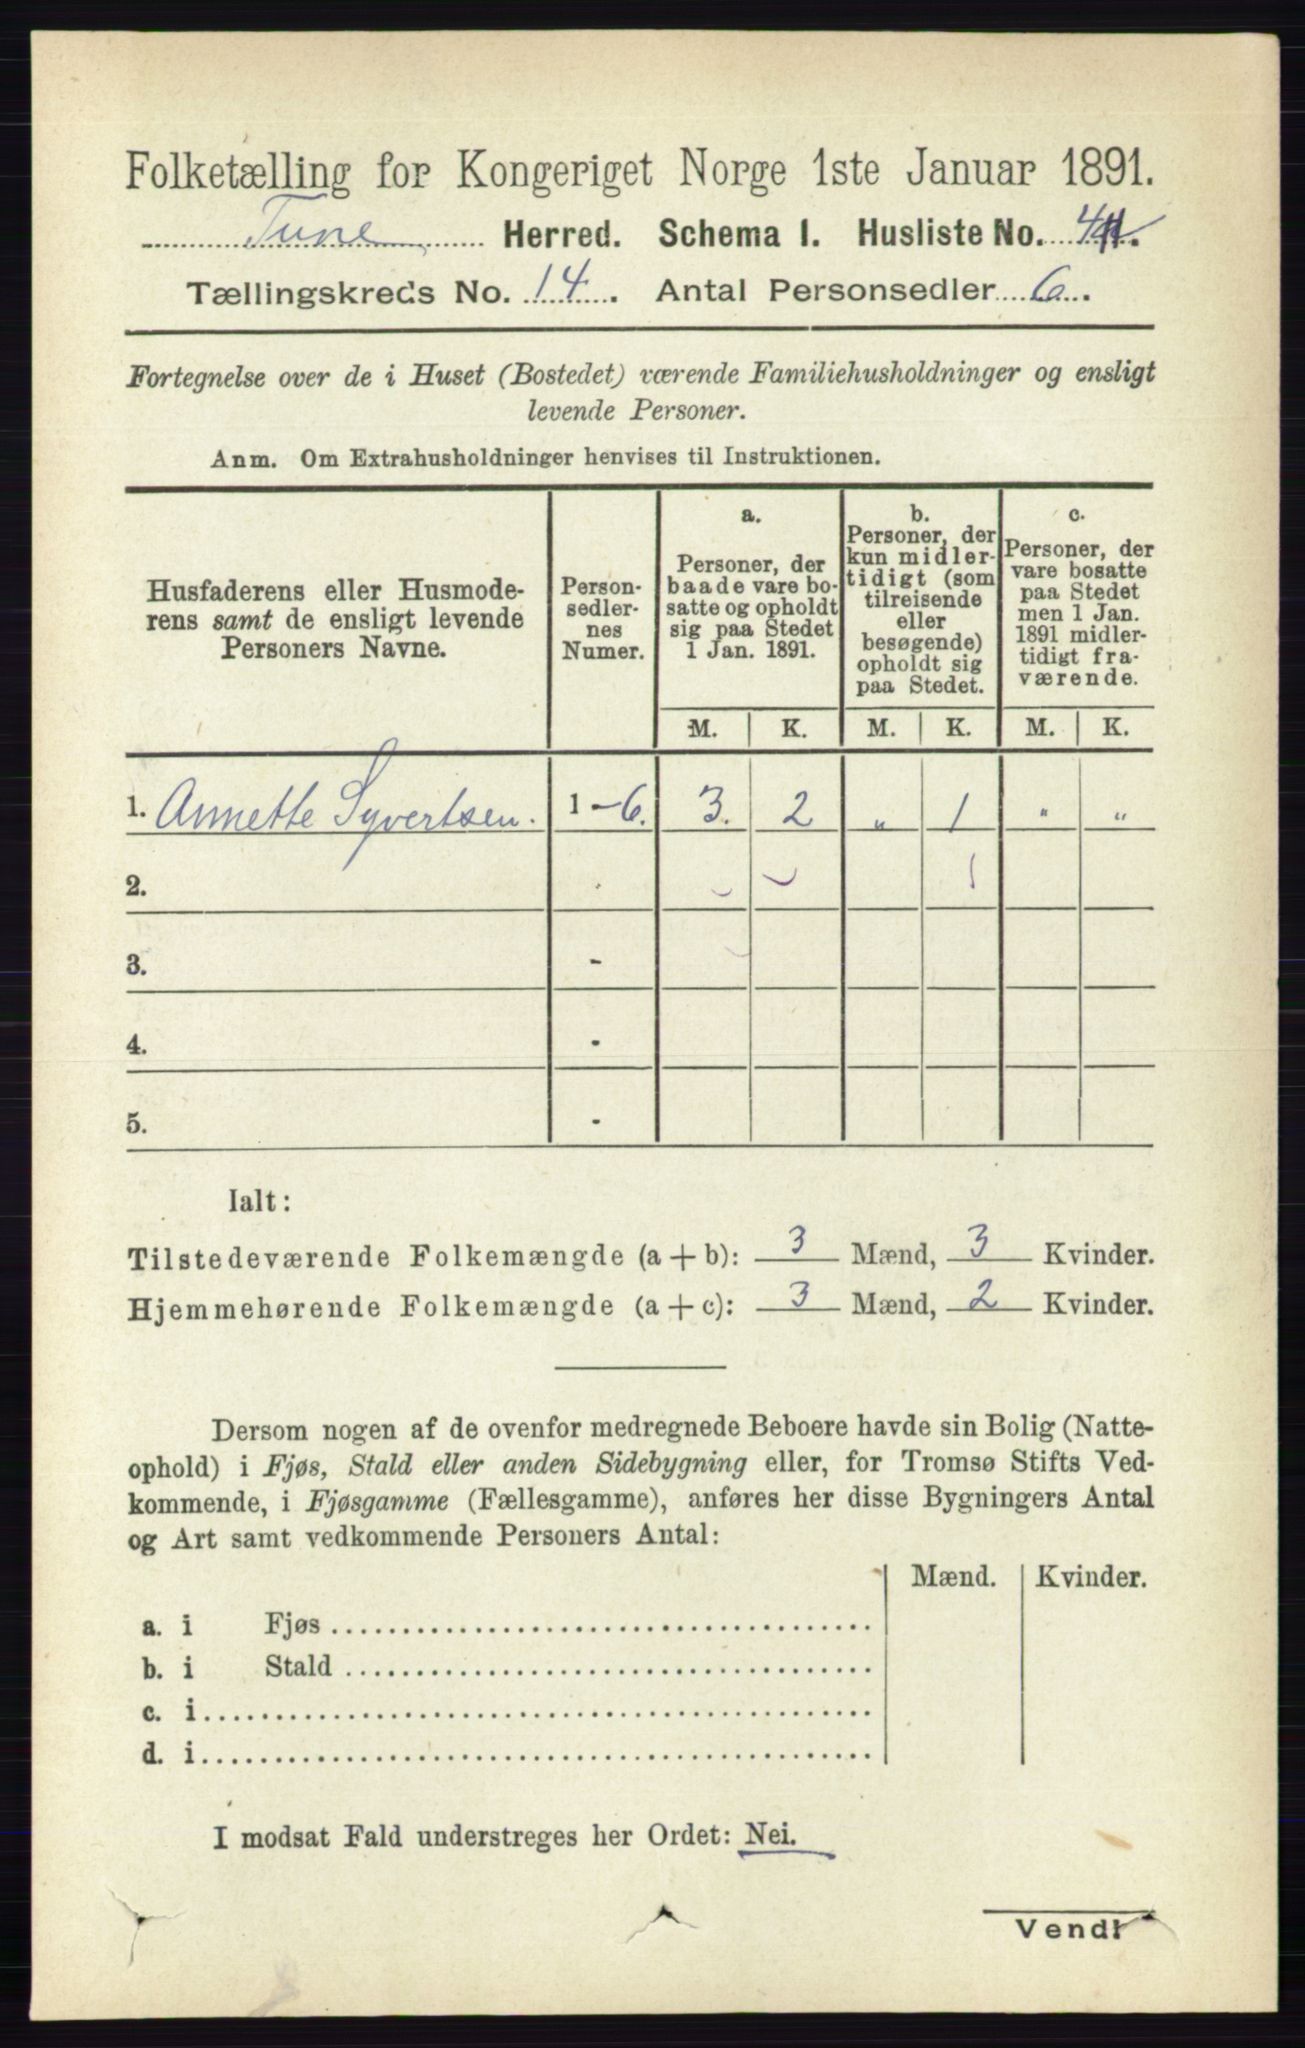 Folketælling for Kongeriget Norge 1ste Januar 1891.
Tune Herred. Schema I. Husliste No.
Tællingskreds No. 14. Antal Personsedler 6.
Fortegnelse over de i Huset (Bostedet) værende Familiehusholdninger og ensligt
levende Personer.
Anm. Om Extrahusholdninger henvises til Instruktionen.
Husfaderens eller Husmode-
rens samt de ensligt levende
Personers Navne.
Person-
sedler-
nes
Numer.
a.
Personer, der
baade vare bo-
satte og opholdt
sig paa Stedet
1 Jan. 1891.
b.
Personer, der
kun midler-
tidigt (som
tilreisende
eller
besøgende)
opholdt sig
paa Stedet.
c.
Personer, der
vare bosatte
paa Stedet
men 1 Jan.
1891 midler-
tidigt fra-
værende.
M. K. M. K. M. K.
1. Annette Syvertsen. 1-6. 3. 2 " 1 " "
2.
3. -
4. -
5. -
Ialt:
Tilstedeværende Folkemængde (a + b): 3 Mænd, 3 Kvinder.
Hjemmehørende Folkemængde (a + c): 3 Mænd, 2 Kvinder.
Dersom nogen af de ovenfor medregnede Beboere havde sin Bolig (Natte-
ophold) i Fjøs, Stald eller anden Sidebygning eller, for Tromsø Stifts Ved-
kommende, i Fjøsgamme (Fællesgamme), anføres her disse Bygningers Antal
og Art samt vedkommende Personers Antal:
Mænd. Kvinder.
a. i Fjøs
b. i Stald
c. i
d. i
I modsat Fald understreges her Ordet: Nei.
Vend!